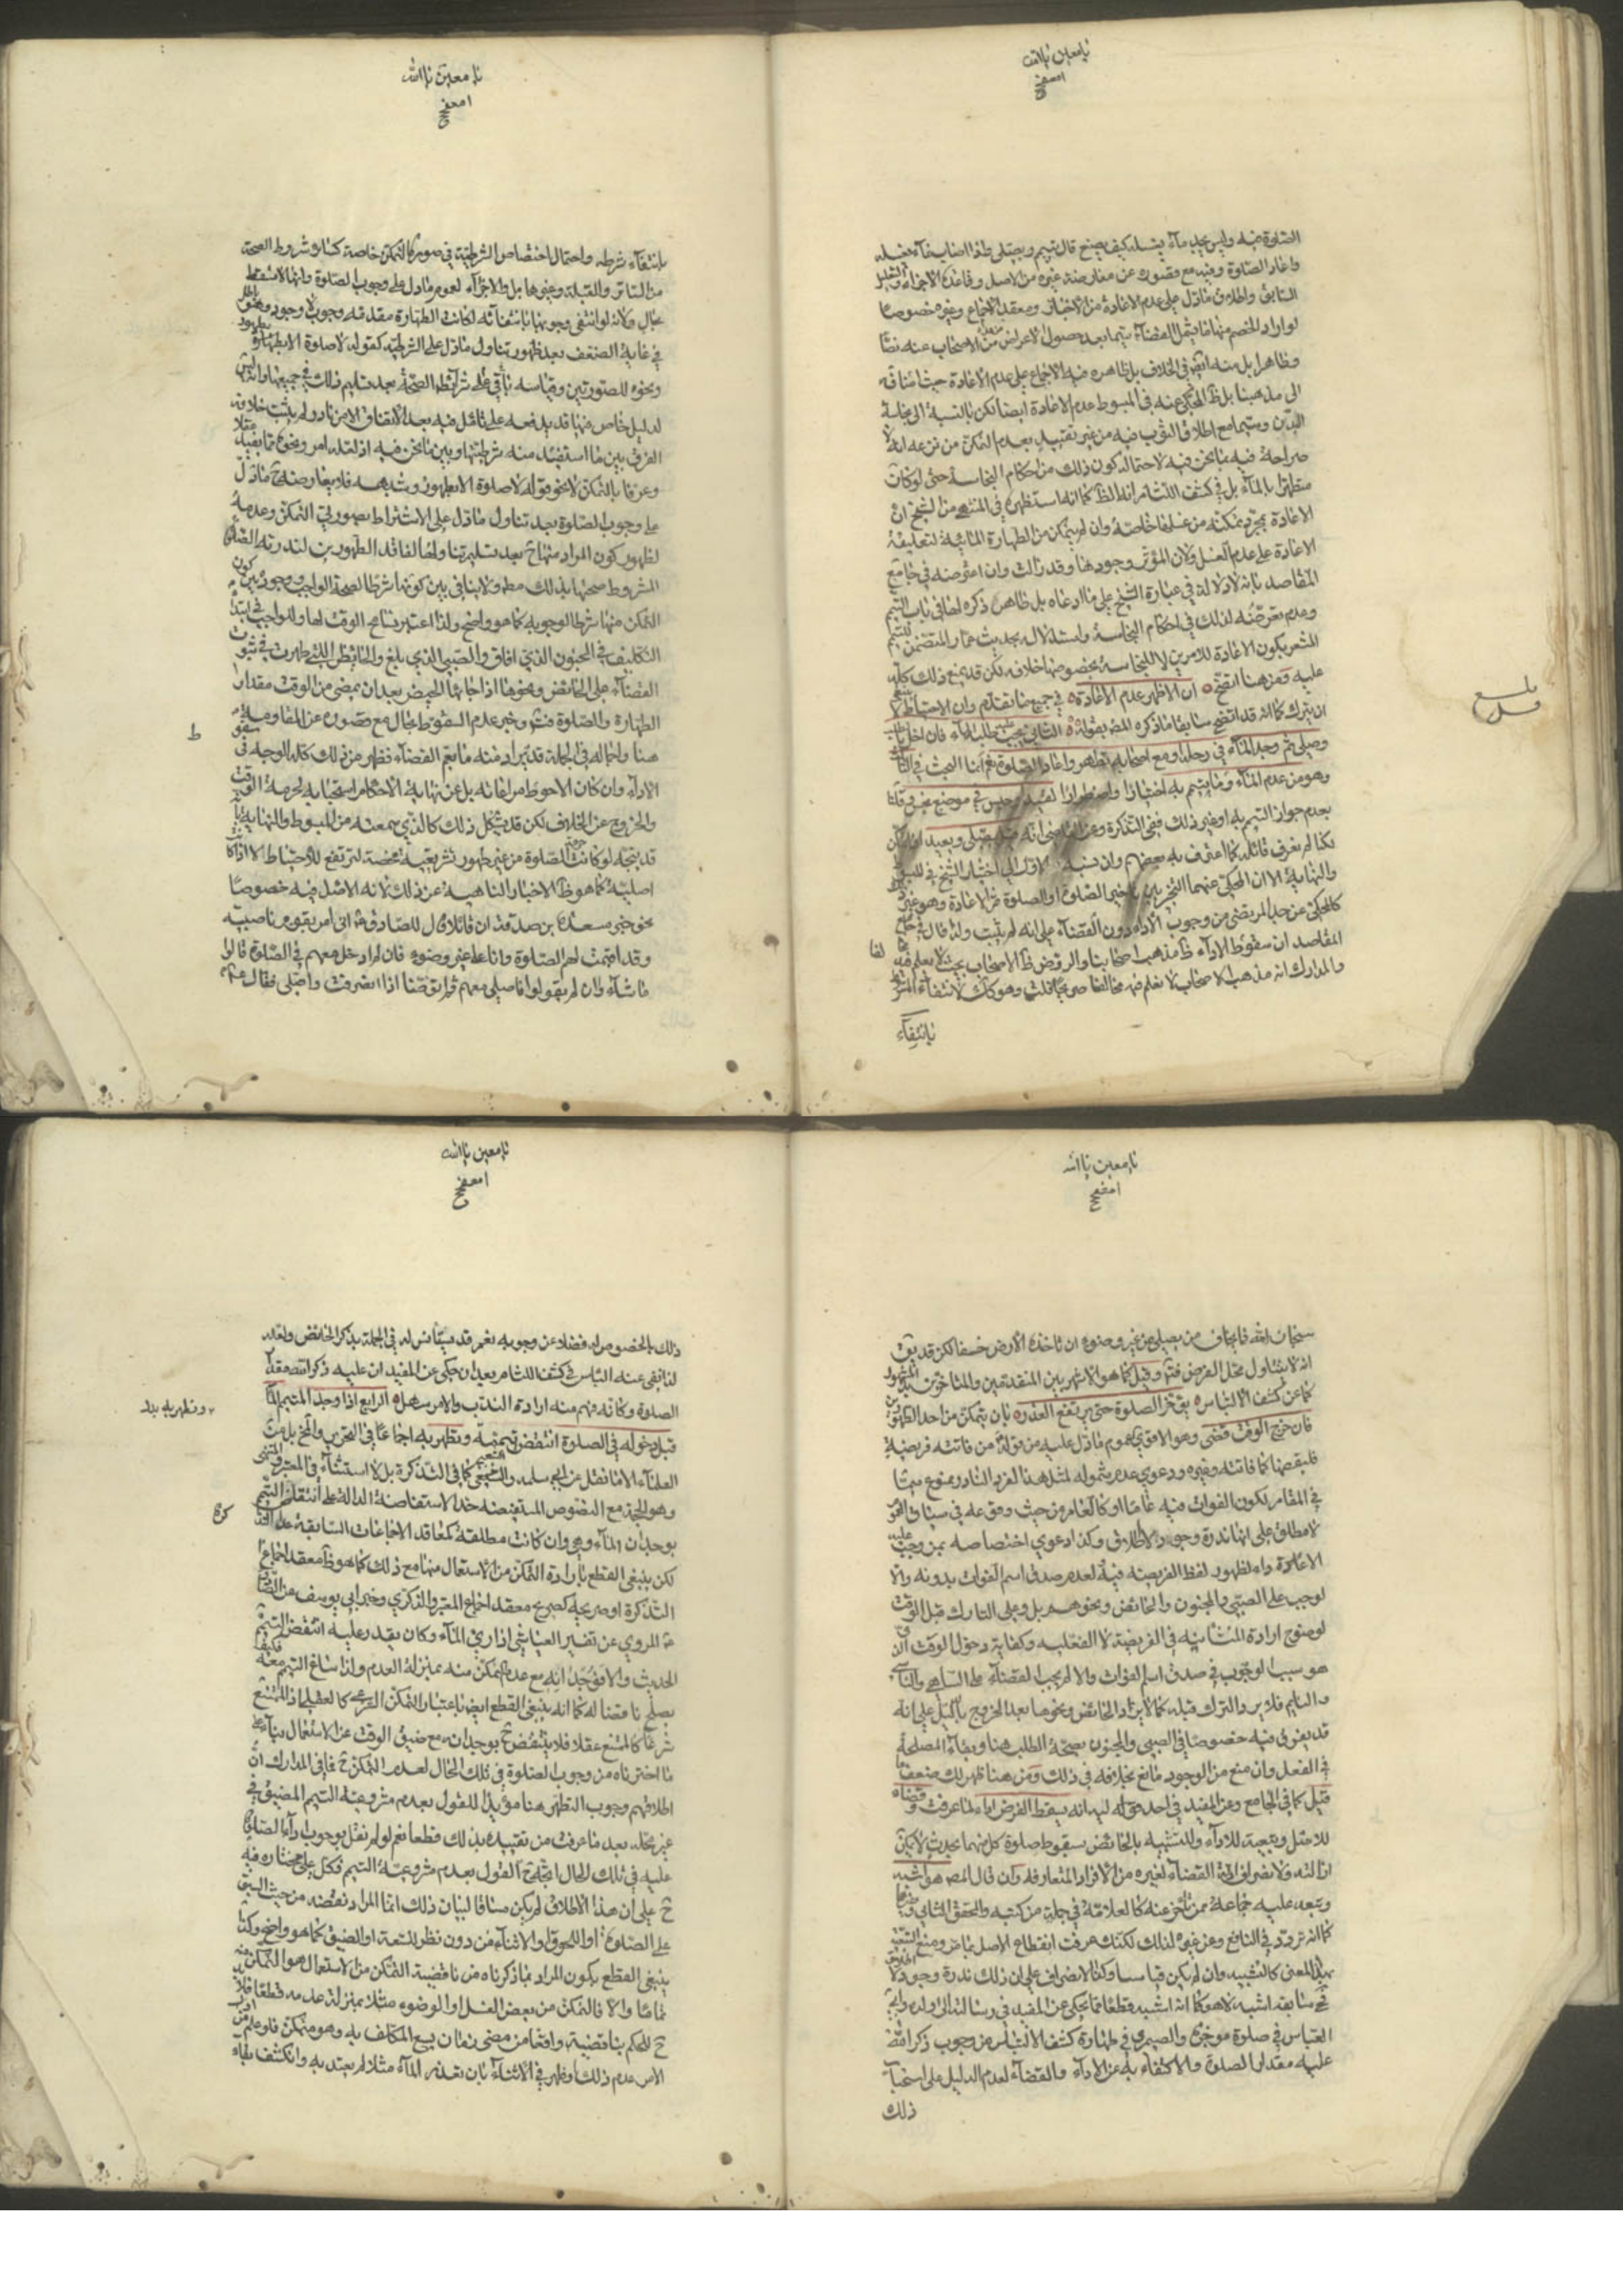 يا معين يا الله
الصلوة فيه وليس يجد ماء يغسله كيف يصنع قال يتيمم ويصلي فاذا اصاب ماء غسله
واعاد الصلوة وفيه مع قصوره عن معارضة غيره من الاصل وقاعدة الاجزاء والتعليل
السابق واطلاق ما دل على عدم الاعادة من الاخبار ومعقد الاجماع وغيره خصوصا
لو اراد الخصم منها ما يشمل القضاء سيما بعد حصول الاعراض من الاصحاب عنه نصا
وظاهرا بل منه اتضح نفي الخلاف بل ظاهره فيه الاجماع على عدم الاعادة حيث اضافه
الى مذهبنا بل ظ المحكي عنه في المبسوط عدم الاعادة ايضا لكن بالنسبة الى نجاسة
البدن وسيما مع اطلاق الثوب فيه من غير تقييد بعدم التمكن من نزعه انه لا
صراحة فيه بما نحن فيه لاحتمال كون ذلك من احكام النجاسة حتى لو كان
متطهرا بالماء بل في كشف اللثام انه الظ كما انه استظهره في المنتهى من الشيخ ان
الاعادة بمجرد تمكنه من غسلها خاصة وان لم يتمكن من الطهارة المائية لتعليقه
الاعادة على عدم الغسل ولان المؤثر وجودها وقد زالت وان اعترضه في جامع
المقاصد بانه لا دلالة في عبارة الشيخ على ما ادعاه بل ظاهر ذكره لها في باب التيمم
وعدم تعرضه لذلك في احكام النجاسة واستدلاله بحديث عمار المتضمن للتيمم
المشعر بكون الاعادة للامرين لا للنجاسة بخصوصها خلافه لكن قد يمنع ذلك كله
عليه ومن هنا اتضح ان الاظهر عدم الاعادة في جميع ما تقدم وان الاحتياط لا
ان يترك كما انه قد اتضح سابقا ما ذكره المصنف بقوله الثاني يجب عليه طلب الماء فان اخل بالطلب
وصلى ثم وجد الماء في رحله او مع اصحابه تطهر واعاد الصلوة نعم انما البحث في الثالث
وهو من عدم الماء وما يتيمم به اختيارا واضطرارا لقيد او حبس في موضع نجس وقلنا
بعدم جواز التيمم به او غير ذلك ففي التذكرة وعن
لكنا لم نعرف قائله كما اعترف به بعضهم وان
والنهاية الا ان المحكي عنهما التخيير بين تاخير الصلوة او الصلوة ثم الاعادة وهو غيره
كالمحكي عن جد المرتضى من وجوب الاداء دون القضاء على انه لم يثبت ولذا قال في جامع
المقاصد ان سقوط الاداء ظ مذهب اصحابنا والروض ظ الاصحاب بحيث لا يعلم فيه
والمدارك انه مذهب الاصحاب لا نعلم فيه مخالفا صريحا قلت وهو كذلك لانتفاء المشروط
بانتفاء
يا معين يا الله
بانتفاء شرطه واحتمال اختصاص الشرطية في صورة التمكن خاصة كسائر شروط الصحة
من الساتر والقبلة ونحوها بل والاجزاء لعموم ما دل على وجوب الصلوة وانها لا تسقط
بحال ولانه لو انتفى وجوبها بانتفائه لكانت الطهارة مقدمة وجوب لا وجود وهو باطل
في غاية الضعف بعد ظهور تناول ما دل على الشرطية كقوله لا صلوة الا بطهور
ونحوه للصورتين وقياسه باقي على شرائط الصحة بعد تسليم ذلك في جميعها وانه ليس
لدليل خاص فيها قد يدفعه على تامل فيه بعد الاتفاق الا من نادر لم يثبت خلافه
الفرق بين ما استفيد منه شرطيتها وبين ما نحن فيه اذ لعله امر ونحوه مما يفيد عقلا
وعرفا بالتمكن لا نحو قوله لا صلوة الا بطهور وشبهه فلا يعارضه ح ما دل
على وجوب الصلوة بعد تناول ما دل على الاشتراط لصورتي التمكن وعدمه
لظهور كون المراد منها ح بعد تسليم تناولها لفاقد الطهورين لندرته الصلوة
المشروط صحتها بذلك مطلقا ولا ينافي بين كونها شرطا لصحة الواجب ووجوده بين كون
التمكن منها شرطا لوجوبه كما هو واضح ولذا اعتبر سائر الوقت لها وللواجب في ابتداء
التكليف في المجنون الذي افاق والصبي الذي بلغ والحائض اللتي طهرت في ثبوت
القضاء على الحائض ونحوها اذا جاءها الحيض بعد ان يمضي من الوقت مقدار
الطهارة والصلوة فتم وخبر عدم السقوط بحال مع قصوره عن المقاومة
هنا واجماله في الجملة قد يراد منه ما يعم القضاء فظهر من ذلك كله الوجه في سقوط
الاداء وان كان الاحوط مراعاته بل عن نهاية الاحكام استحبابه لحرمة الوقت
والخروج عن الخلاف لكن قد يشكل ذلك كالذي سمعته من المبسوط والنهاية بانه
قد يتجه لو كانت حرمة الصلوة من غير طهور تشريعية محضة لترتفع للاحتياط لا اذا كانت
اصلية كما هو ظ الاخبار الناهية عن ذلك لانه الاصل فيه خصوصا
نحو خبر مسعدة بن صدقة ان قائلا قال للصادق ع اني امر بقوم ناصبية
وقد اقيمت لهم الصلوة وانا على غير وضوء فان لم ادخل معهم في الصلوة قالوا
ما شاء وان لم يقولوا فاصلي معهم ثم اتوضا اذا انصرفت واصلي فقال ع
ط
يا معين يا الله
سبحان الله فما يخاف من يصلي من غير وضوء ان تاخذه الارض خسفا لكن قد يق
انه لا يتناول محل الفرض فتم وقيل كما هو الاشهر بين المتقدمين والمتاخرين بل المشهور
كما عن كشف الالتباس يؤخر الصلوة حتى يرتفع العذر بان يتمكن من احد الطهورين
فان خرج الوقت قضى وهو الاقوى لعموم ما دل عليه من قوله من فاتته فريضة
فليقضها كما فاتته وغيره ودعوى عدم شموله لمثل هذا الفرد النادر ممنوع سيما
في المقام لكون الفوات فيه عاما او كالعام من حيث وقوعه في سياق العموم
لا مطلق على انها ندرة وجود لا اطلاق وكذا دعوى اختصاصه بمن وجب عليه
الاداء لظهور لفظ الفريضة فيه لعدم صدق اسم الفوات بدونه والا
لوجب على الصبي والمجنون والحائض ونحوهم بل وعلى التارك قبل الوقت
لوضوح ارادة الشانية في الفريضة لا الفعلية وكفاية دخول الوقت الذي
هو سبب الوجوب في صدق اسم الفوات والا لم يجب القضاء على الساهي والناسي
والنايم فلا ير والترك قبله كما لا يراد الحائض ونحوها بعد الخروج بالدليل على انه
قد يفرق فيه خصوصا في الصبي والمجنون بصحة الطلب هنا وبقاء المصلحة
في الفعل وان منع من الوجود مانع بخلافه في ذلك ومن هنا ظهر لك ضعف ما
قيل كما في الجامع وعن المفيد في احد قوليه انه يسقط الفرض اداء لما عرفت وقضاء
للاصل وتبعية للاداء وللتشبيه بالحائض بسقوط صلوة كل منهما بحدث لا يمكن
ازالته ولانصراف ادلة القضاء لغيره من الافراد المتعارفة وان قال المصنف هو اشبه
وتبعه عليه جماعة ممن تاخر عنه كالعلامة في جملة من كتبه والمحقق الثاني وغيرهما
كما انه تردد في النافع وعن غيره لذلك لكنك عرفت انقطاع الاصل بما مر ومنع التبعية
بهذا المعنى كالتشبيه وان لم يكن قياسا وكذا الانصراف على ان ذلك ندرة وجود لا اطلاق
فح سابقه اشبه لا هو كما انه اشبه قطعا مما يحكى عن المفيد في رسالته الى ولده وابي
العباس في صلوة موجزه والصيمري في طهارة كشف الالتباس من وجوب ذكر الله
عليه مقدار الصلوة والاكتفاء به عن الاداء والقضاء لعدم الدليل على استحباب
ذلك
يا معين يا الله
ذلك بالخصوص له فضلا عن وجوبه نعم قد يستانس له في الجملة بذكر الحائض ولعله
لذا نفى عنه الباس في كشف اللثام بعد ان حكى عن المفيد ان عليه ذكر الله مقدار
الصلوة وكانه فهم منه ارادة الندب والامر سهل الرابع اذا وجد المتيمم الماء
قبل دخوله في الصلوة انتقض تيممه وتطهر به اجماعا في التحرير والمنتهى بل من
العلماء الا ما نقل عن ابي سلمة والشعبي كما في التذكرة بل لا استثناء في المعتبر والمنتهى
وهو الحجة مع النصوص المستفيضة حد الاستفاضة الدالة على انتقاض التيمم
بوجدان الماء وهي وان كانت مطلقة كمعاقد الاجماعات السابقة
لكن ينبغي القطع بارادة التمكن من الاستعمال منها مع ذلك كما هو ظ معقد اجماع
التذكرة او صريحه كصريح معقد اجماع المعتبر والذكرى وخبر ابي يوسف عن الصادق
ع المروي عن تفسير العياشي اذا راى الماء وكان يقدر عليه انتقض التيمم
الحديث والا فوجدانه مع عدم التمكن منه بمنزلة العدم ولذا ساغ التيمم معه فكيف
يصلح ناقضا له كما انه ينبغي القطع ايضا باعتبار التمكن الشرعي كالعقلي اذ الممتنع
شرعا كالممتنع عقلا فلا ينتقض ح بوجدانه مع ضيق الوقت عن الاستعمال بناء على
ما اخترناه من وجوب الصلوة في تلك الحال لعدم التمكن ح فما في المدارك ان
اطلاقهم وجوب التطهر هنا مؤيدا للقول بعدم مشروعية التيمم للضيق في
غير محله بعد ما عرفت من تقييده بذلك قطعا نعم لو لم نقل بوجوب اداء الصلوة
عليه في تلك الحال اتجه ح القول بعدم مشروعية التيمم فكل على مختاره فيه
ح على ان هذا الاطلاق لم يكن مساقا لبيان ذلك انما المراد نقضه من حيث السبق
على الصلوة او اللحوق او الاثناء من دون نظر للسعة او الضيق كما هو واضح وكذا
ينبغي القطع بكون المراد بما ذكرناه من ناقضية التمكن من الاستعمال هو التمكن منه
تماما والا فالتمكن من بعض الغسل او الوضوء مثلا بمنزلة عدمه قطعا فلا بد
ح للحكم بناقضيته واقعا من مضي زمان يسع المكلف به وهو متمكن فلو علم من اول
الامر عدم ذلك او ظهر في الاثناء بان نفد الماء مثلا لم يعتد به وانكشف بقاء
وتطهر به